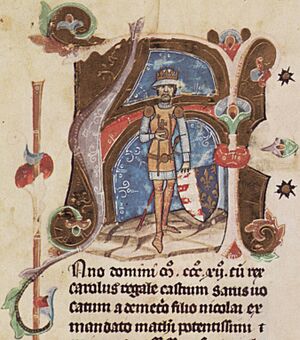 Anno domini Mº. ccc. xij. cū rex
carolus regale castrum Sarus uo
catum a demetrio filio nicolai ex
mandato mathei potentissimi